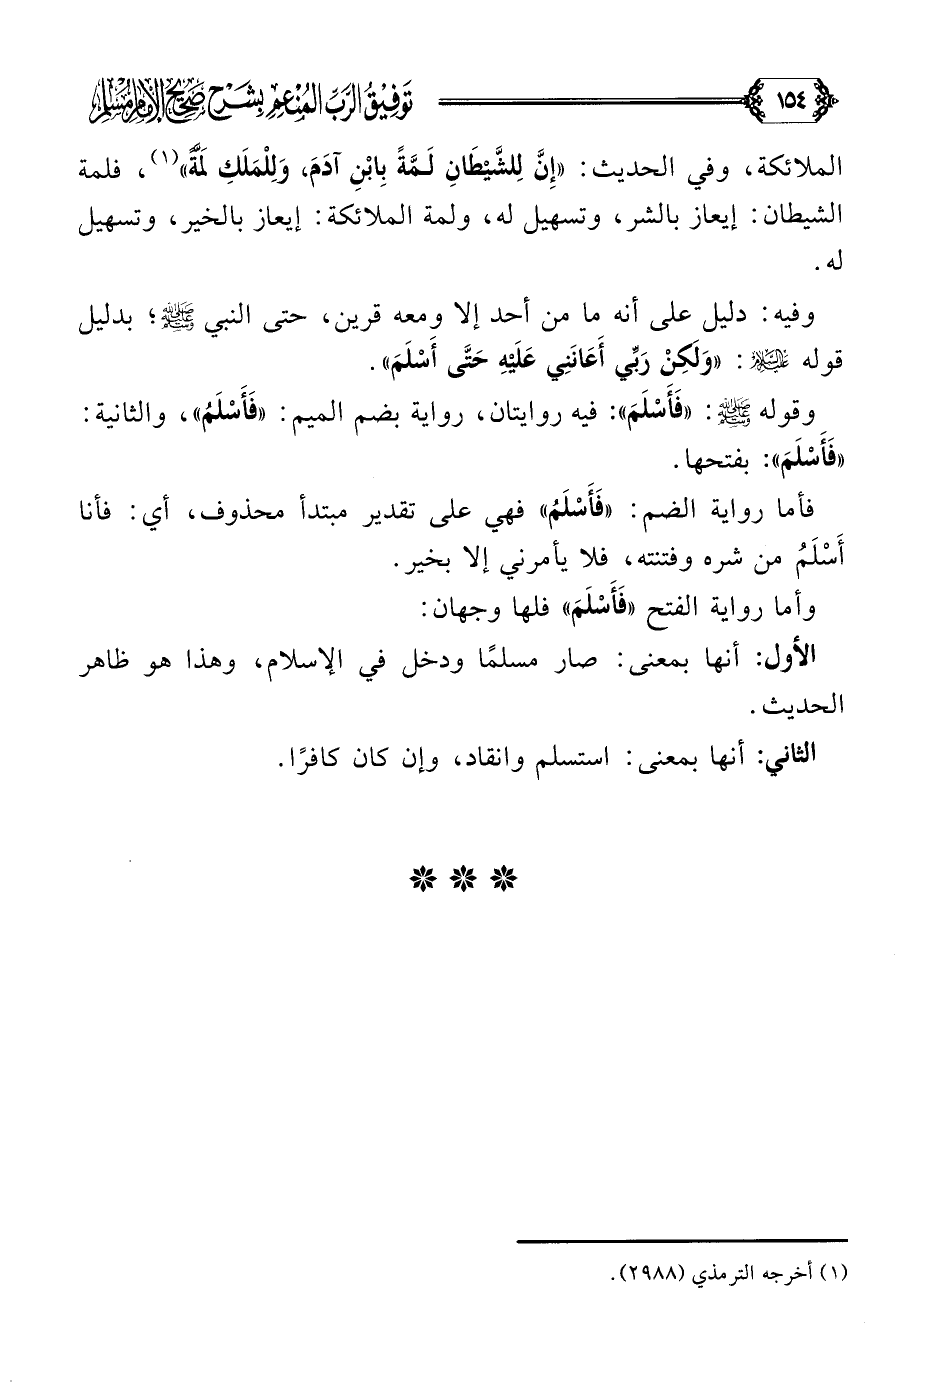 ١٥٤ توفيق الرب المنعم بشرح صحيح الإمام مسلم
الملائكة، وفي الحديث: «إِنَّ لِلشَّيْطَانِ لَـمَّةً بِابْنِ آدَمَ، وَلِلْمَلَكِ لَمَّةٌ»(١)، فلمة
الشيطان: إيعاز بالشر، وتسهيل له، ولمة الملائكة: إيعاز بالخير، وتسهيل
له.
وفيه: دليل على أنه ما من أحد إلا ومعه قرين، حتى النبي ﷺ؛ بدليل
قوله عليه السلام: «وَلَكِنْ رَبِّي أَعَانَنِي عَلَيْهِ حَتَّى أَسْلَمَ».
وقوله ﷺ: «فَأَسْلَمَ»: فيه روايتان، رواية بضم الميم: «فَأَسْلَمُ»، والثانية:
«فَأَسْلَمَ»: بفتحها.
فأما رواية الضم: «فَأَسْلَمُ» فهي على تقدير مبتدأ محذوف، أي: فأنا
أَسْلَمُ من شره وفتنته، فلا يأمرني إلا بخير.
وأما رواية الفتح «فَأَسْلَمَ» فلها وجهان:
الأول: أنها بمعنى: صار مسلمًا ودخل في الإسلام، وهذا هو ظاهر
الحديث.
الثاني: أنها بمعنى: استسلم وانقاد، وإن كان كافرًا.
(١) أخرجه الترمذي (٢٩٨٨).